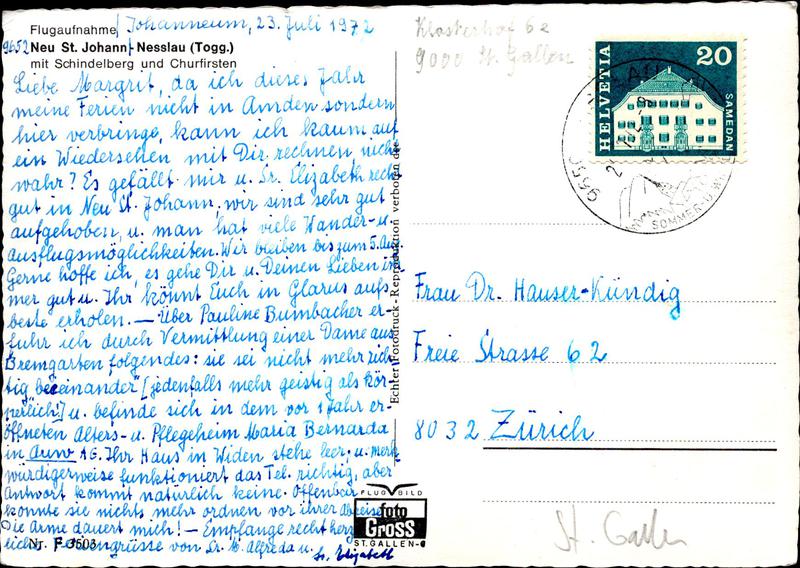 Flugaufnahme / Johanneum, 23. Juli 1972
9652 Neu St. Johann - Nesslau (Togg.)
mit Schindelberg und Churfirsten
Liebe Margrit, da ich dieses Jahr
meine Ferien nicht in Amden sondern
hier verbringe, kann ich kaum auf
ein Wiedersehen mit Dir rechnen nicht
wahr? Es gefällt mir u. Sr. Elizabeth recht
gut in Neu St. Johann, wir sind sehr gut
aufgehoben, u. man hat viele Wander- u.
Ausflugsmöglichkeiten. Wir bleiben bis zum 5. Aug.
Gerne hoffe ich, es gehe Dir u. Deinen Lieben im
mer gut u. Ihr könnt Euch in Glarus aufs
beste erholen. — Über Pauline Bumbacher er-
fuhr ich durch Vermittlung einer Dame aus
Bremgarten folgendes: sie sei nicht mehr rich
tig "beieinander" [jedenfalls mehr geistig als kör-
perlich!] u. befinde sich in dem vor 1 Jahr er-
öffneten Alters- u. Pflegeheim Maria Bernarda
in Auw AG. Ihr Haus in Widen stehe leer, u. merk
würdigerweise funktioniert das Tel. richtig, aber
Antwort kommt natürlich keine. Offenbar
konnte sie nichts mehr ordnen vor ihrer Abreise
Die Arme dauert mich! — Empfange recht herz
liche Feriengrüsse von Sr. M. Alfreda u.
Sr. Elizabeth
Nr. F 3503
Echter Fotodruck - Reproduktion verboten
FLUGBILD
foto
Gross
ST. GALLEN
Klosterhof 6e
9000 St. Gallen
HELVETIA
20
SAMEDAN
9650
SOMMER- U.
Frau Dr. Hauser-Kündig
Freie Strasse 62
8032 Zürich
St. Gallen